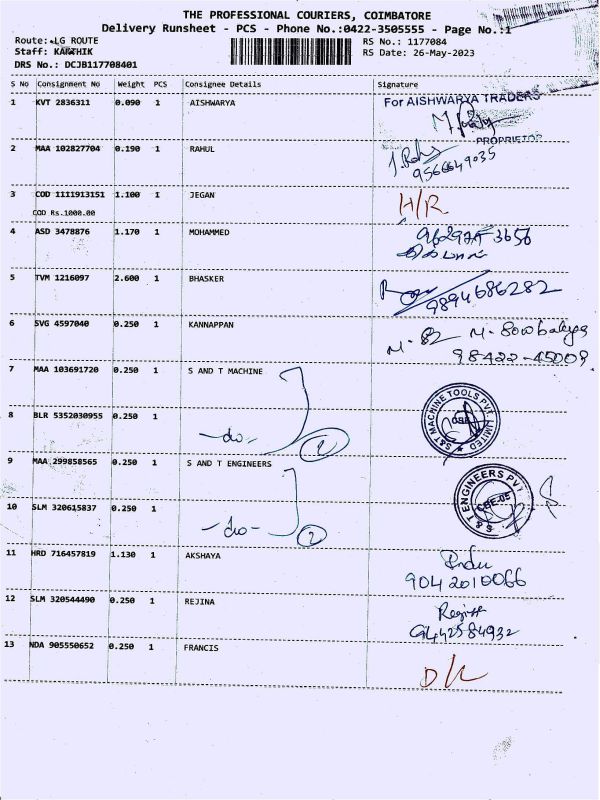 THE PROFESSIONAL COURIERS, COIMBATORE
Delivery Runsheet - PCS - Phone No.:0422-3505555 - Page No.:1
Route: LG ROUTE RS No.: 1177084
Staff: KARTHIK RS Date: 26-May-2023
DRS No.: DCJB117708401
S No Consignment No Weight PCS Consignee Details Signature
1 KVT 2836311 0.090 1 AISHWARYA For AISHWARYA TRADERS
PROPRIETOR
2 MAA 102827704 0.190 1 RAHUL
9566649035
3 COD 1111913151 1.100 1 JEGAN H/R
COD Rs.1000.00
4 ASD 3478876 1.170 1 MOHAMMED
5 TVM 1216097 2.600 1 BHASKER
9894686282
6 SVG 4597040 0.250 1 KANNAPPAN M-82 M-
98422-45009
7 MAA 103691720 0.250 1 S AND T MACHINE
S&T MACHINE TOOLS PVT. LIMITED
8 BLR 5352030955 0.250 1 -do- 2
9 MAA 299858565 0.250 1 S AND T ENGINEERS
S & T ENGINEERS PVT.
CBE-05
10 SLM 320615837 0.250 1 -do- 2
11 HRD 716457819 1.130 1 AKSHAYA
9042010066
12 SLM 320544490 0.250 1 REJINA
9442584932
13 NDA 905550652 0.250 1 FRANCIS D/L